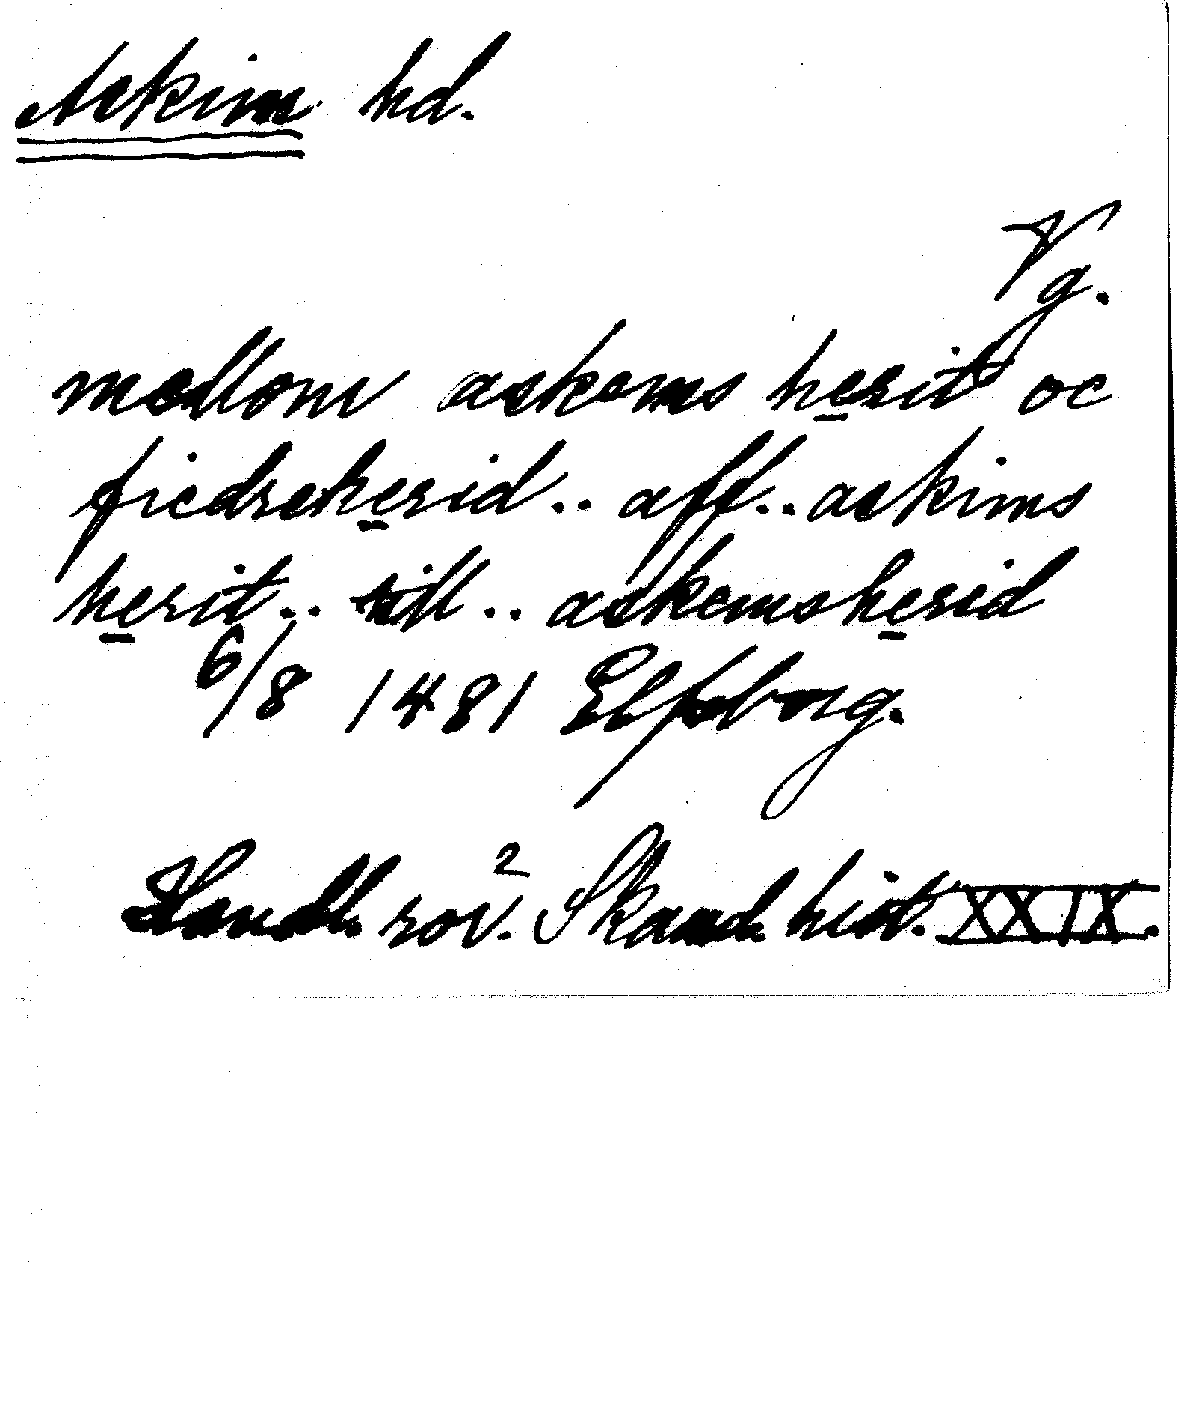 Askim hd.
Vg.
mellom askems herit oc
fiedreherid.. aff.. askims
herit.. till.. askemsherid
6/8 1481 Elfsborg.
Handl. rör. Skand. hist. XXIX.